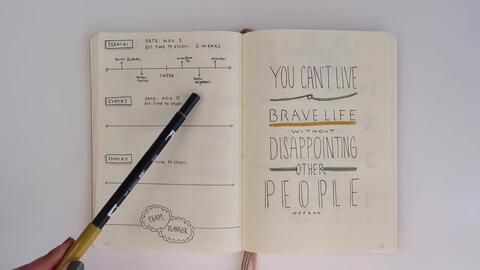 EXAM #1
DATE: NOV 5
EST TIME TO STUDY: 2 WEEKS
1 WEEK
EXAM #2
DATE: NOV 15
EST TIME TO STUDY:
EXAM #3
TIME TO STUDY:
EXAM
PLANNER
YOU CAN'T LIVE
a
BRAVE LIFE
WITHOUT
DISAPPOINTING
OTHER
PEOPLE